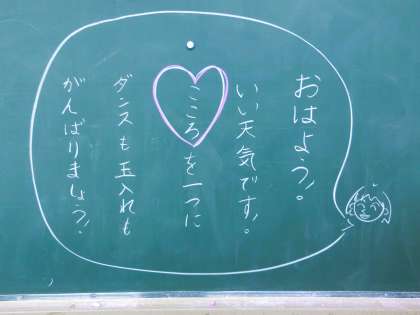 おはよう!。
いい天気です!。
こころを一つに
ダンスも玉入れも
がんばりましょう!